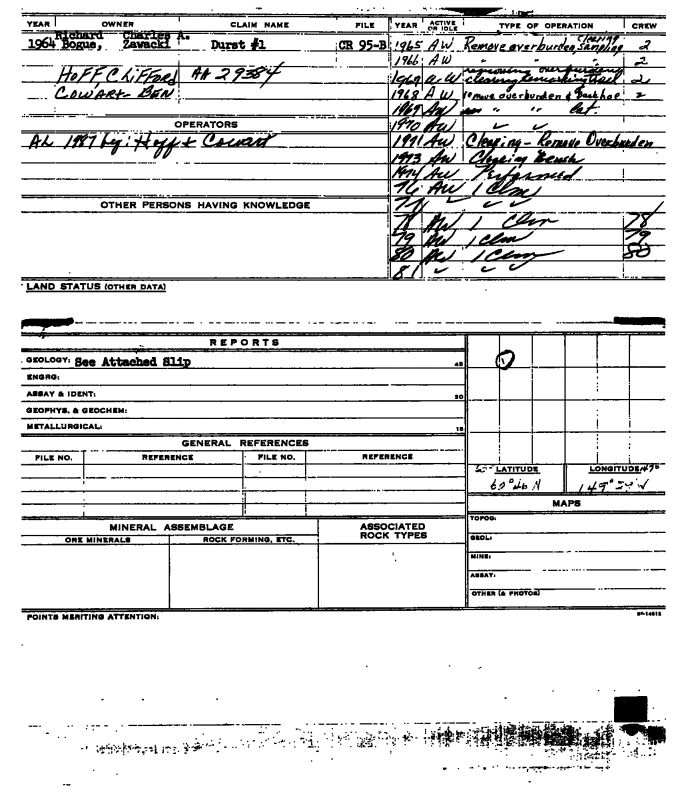 YEAR OWNER CLAIM NAME FILE YEAR ACTIVE OR IDLE TYPE OF OPERATION CREW
1964 Richard Bogue, Charles A. Zawacki Durst #1 CR 95-B 1965 AW Remove overburden, clearing sampling 2
1966 AW " " 2
HOFF CLIFFORD AA 29384 removing overburden clearing & remarking trail 2
COWART BEN 1968 AW remove overburden & backhoe 2
1969 AW " "
OPERATORS 1970 AW
AL 1987 by: Hoff & Cowart 1971 AW Clearing - Remove Overburden
1973 AW Clearing Brush
1974 AW Performed
76 AW 1 Clm
OTHER PERSONS HAVING KNOWLEDGE 77
78 AW 1 Clm 78
79 AW 1 Clm 79
80 AW 1 Clm 80
81
LAND STATUS (OTHER DATA)
REPORTS
GEOLOGY: See Attached Slip 45 1
ENGRG:
ASSAY & IDENT: 30
GEOPHYS. & GEOCHEM:
METALLURGICAL: 15
GENERAL REFERENCES
FILE NO. REFERENCE FILE NO. REFERENCE
LATITUDE LONGITUDE
60°46 N 149° W
MAPS
MINERAL ASSEMBLAGE ASSOCIATED ROCK TYPES TOPOG:
ORE MINERALS ROCK FORMING, ETC. GEOL:
MINE:
ASSAY:
OTHER (& PHOTOS)
POINTS MERITING ATTENTION: